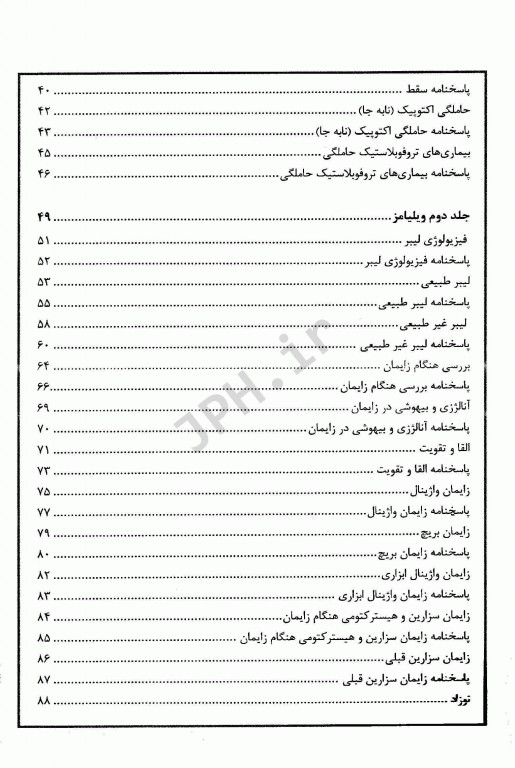 پاسخنامه سقط ........ ۴۰
حاملگی اکتوپیک (نابه جا) ........ ۴۲
پاسخنامه حاملگی اکتوپیک (نابه جا) ........ ۴۳
بیماری‌های تروفوبلاستیک حاملگی ........ ۴۵
پاسخنامه بیماری‌های تروفوبلاستیک حاملگی ........ ۴۶
جلد دوم ویلیامز ........ ۴۹
فیزیولوژی لیبر ........ ۵۱
پاسخنامه فیزیولوژی لیبر ........ ۵۲
لیبر طبیعی ........ ۵۳
پاسخنامه لیبر طبیعی ........ ۵۵
لیبر غیر طبیعی ........ ۵۸
پاسخنامه لیبر غیر طبیعی ........ ۶۰
بررسی هنگام زایمان ........ ۶۴
پاسخنامه بررسی هنگام زایمان ........ ۶۶
آنالژزی و بیهوشی در زایمان ........ ۶۹
پاسخنامه آنالژزی و بیهوشی در زایمان ........ ۷۰
القا و تقویت ........ ۷۱
پاسخنامه القا و تقویت ........ ۷۳
زایمان واژینال ........ ۷۵
پاسخنامه زایمان واژینال ........ ۷۷
زایمان بریچ ........ ۷۹
پاسخنامه زایمان بریچ ........ ۸۰
زایمان واژینال ابزاری ........ ۸۲
پاسخنامه زایمان واژینال ابزاری ........ ۸۳
زایمان سزارین و هیسترکتومی هنگام زایمان ........ ۸۴
پاسخنامه زایمان سزارین و هیسترکتومی هنگام زایمان ........ ۸۵
زایمان سزارین قبلی ........ ۸۶
پاسخنامه زایمان سزارین قبلی ........ ۸۷
نوزاد ........ ۸۸
JPH.ir